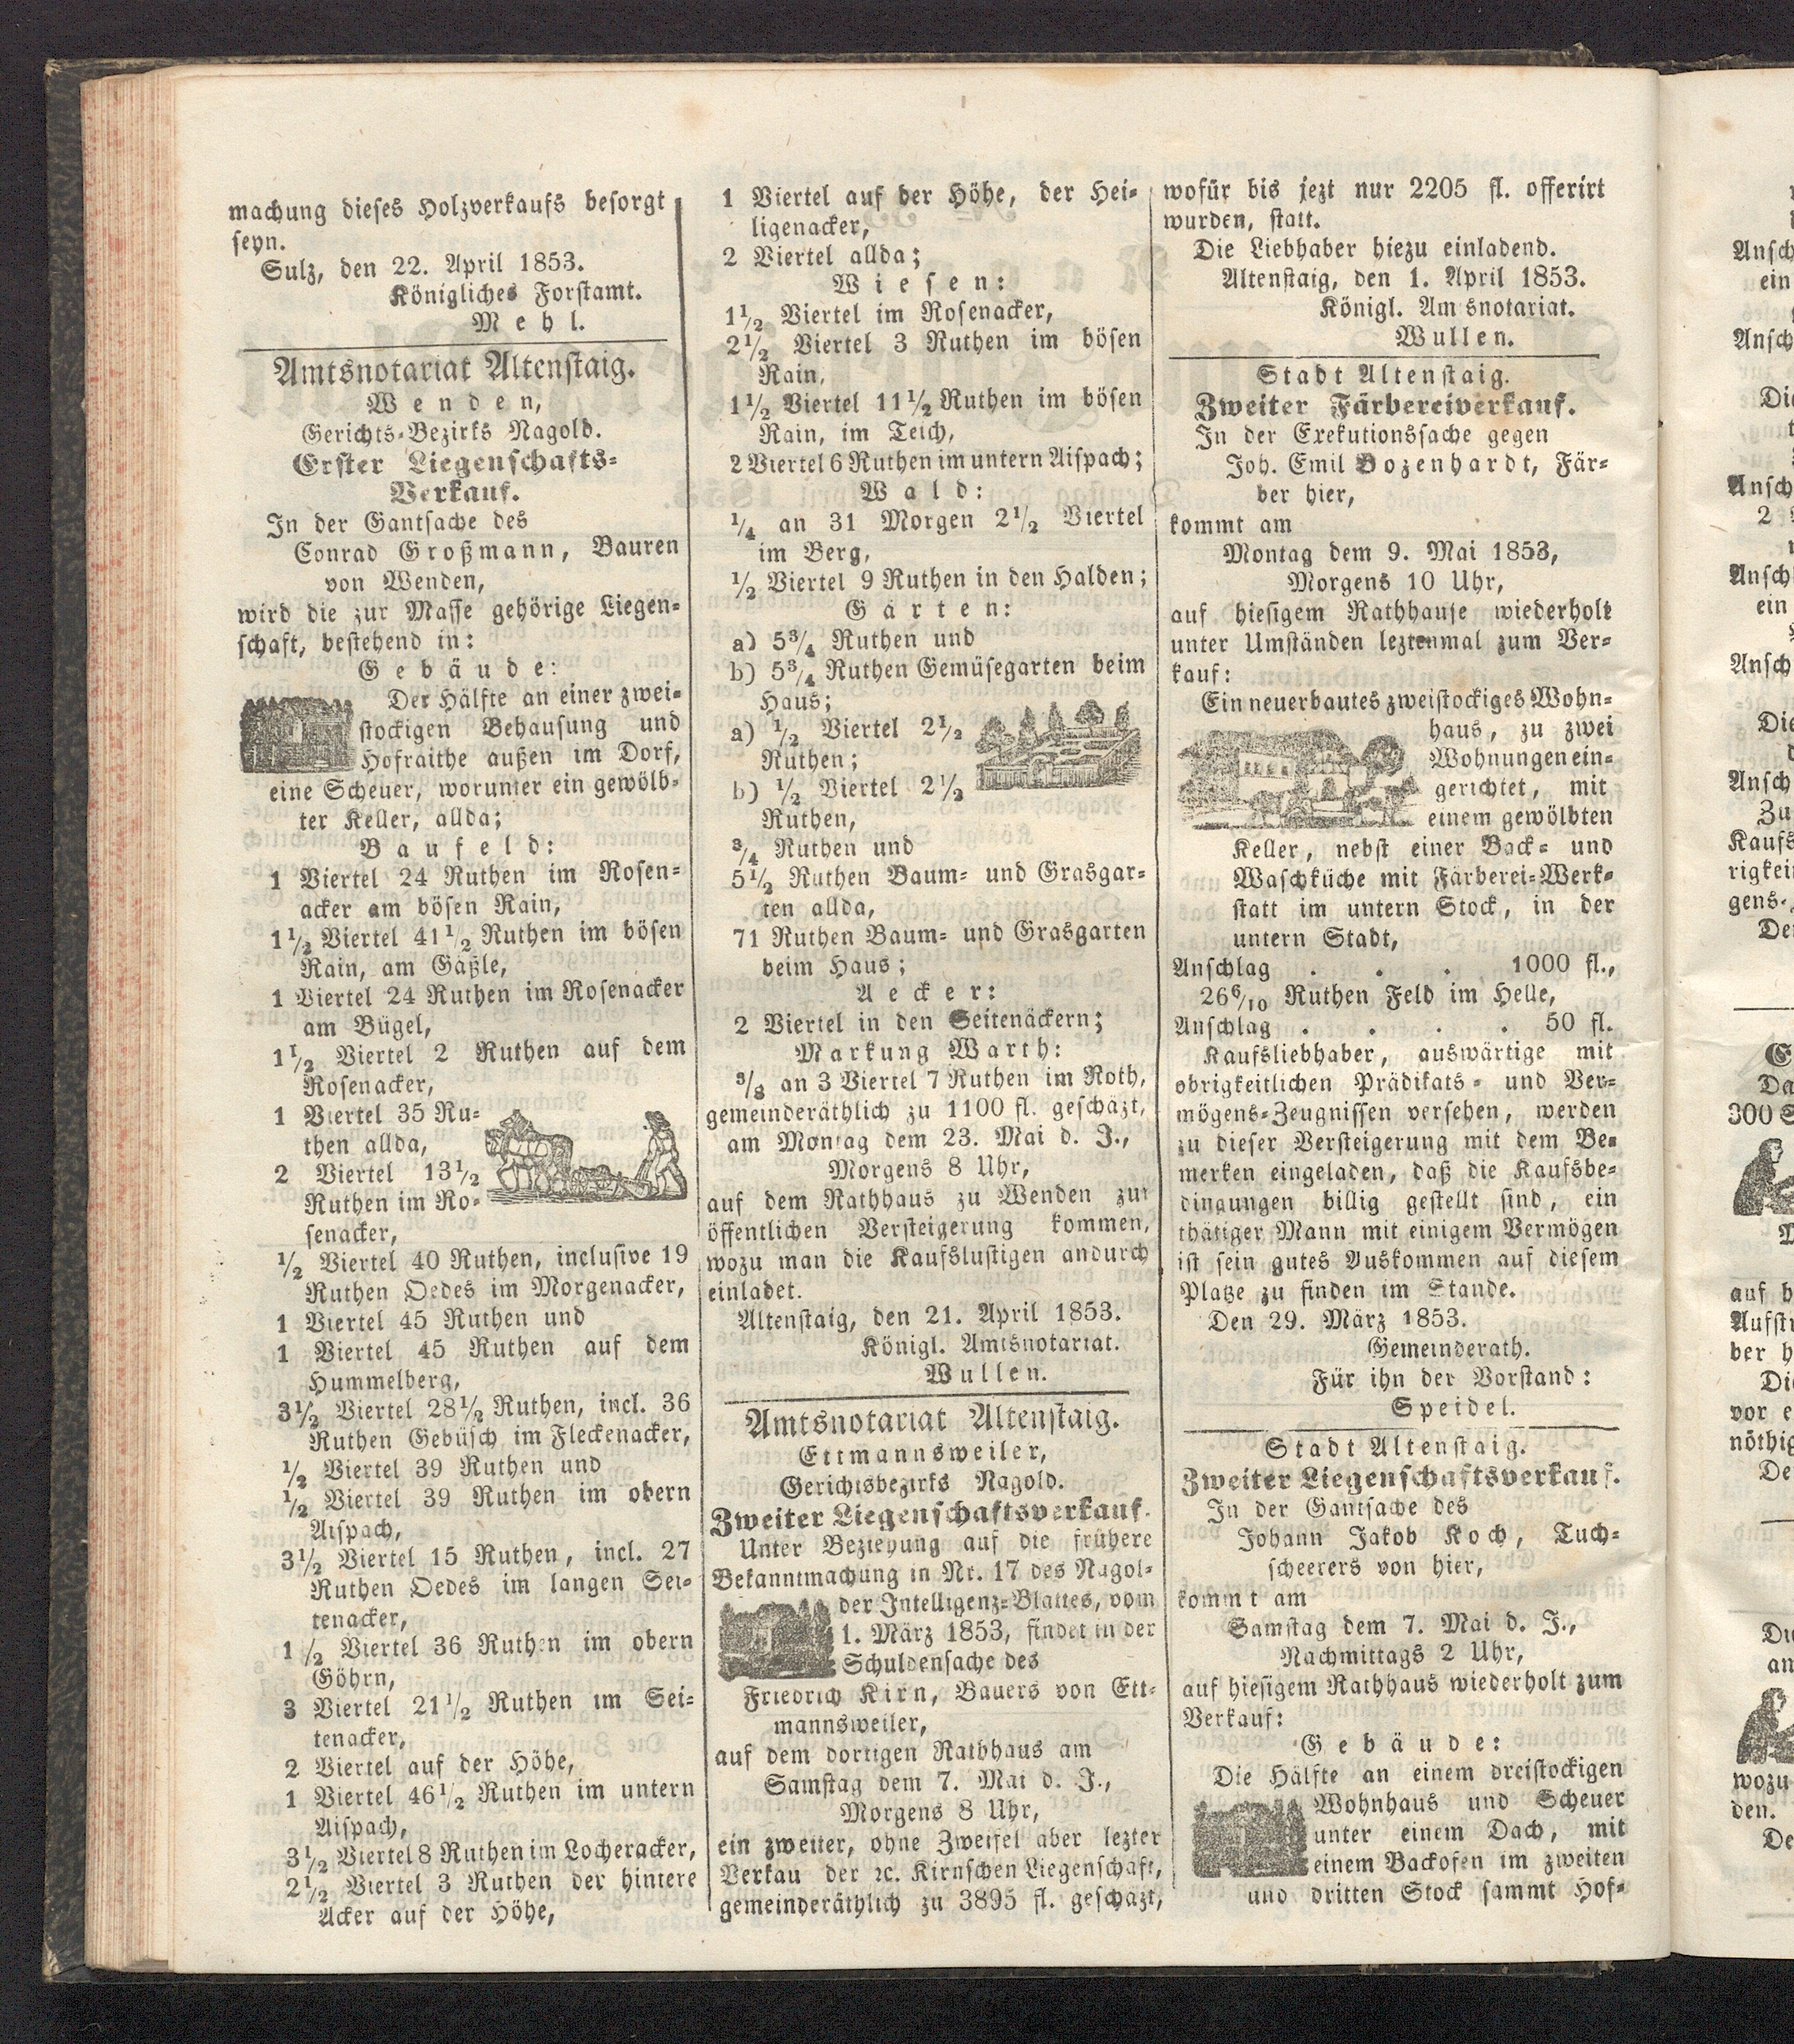 machung dieses Holzverkaufs besorgt
seyn.
Sulz, den 22. April 1853.
Königliches Forstamt.
Mehl.
Amtsnotariat Altenstaig.
Wenden,
Gerichts-Bezirks Nagold.
Erster Liegenschafts-
Verkauf.
In der Gantsache des
Conrad Großmann, Bauren
von Wenden,
wird die zur Masse gehörige Liegen-
schaft, bestehend in:
Gebäude:
Der Hälfte an einer zwei-
stockigen Behausung und
Hofraithe außen im Dorf,
eine Scheuer, worunter ein gewölb-
ter Keller, allda;
Baufeld:
1 Viertel 24 Ruthen im Rosen-
acker am bösen Rain,
1½ Viertel 41½ Ruthen im bösen
Rain, am Gäßle,
1 Viertel 24 Ruthen im Rosenacker
am Bügel,
1½ Viertel 2 Ruthen auf dem
Rosenacker,
1 Viertel 35 Ru-
then allda,
2 Viertel 13½
Ruthen im Ro-
senacker,
½ Viertel 40 Ruthen, inclusive 19
Ruthen Oedes im Morgenacker,
1 Viertel 45 Ruthen und
1 Viertel 45 Ruthen auf dem
Hummelberg,
3½ Viertel 28½ Ruthen, incl. 36
Ruthen Gebüsch im Fleckenacker,
½ Viertel 39 Ruthen und
½ Viertel 39 Ruthen im obern
Aispach,
3½ Viertel 15 Ruthen, incl. 27
Ruthen Oedes im langen Sei-
tenacker,
1 /2 Viertel 36 Ruthen im obern
Göhrn,
3 Viertel 21½ Ruthen im Sei-
tenacker,
2 Viertel auf der Höhe,
1 Viertel 46½ Ruthen im untern
Aispach,
3½ Viertel 8 Ruthen im Locheracker,
2½ Viertel 3 Ruthen der hintere
Acker auf der Höhe,
1 Viertel auf der Höhe, der Hei-
ligenacker,
2 Viertel allda;
Wiesen:
1½ Viertel im Rosenacker,
2½ Viertel 3 Ruthen im bösen
Rain,
1½ Viertel 11½ Ruthen im bösen
Rain, im Teich,
2 Viertel 6 Ruthen im untern Aispach;
Wald:
¼ an 31 Morgen 2½ Viertel
im Berg,
½ Viertel 9 Ruthen in den Halden;
Gärten:
a) 5¾ Ruthen und
b) 5¾ Ruthen Gemüsegarten beim
Haus;
a) ½ Viertel 2½
Ruthen;
b) ½ Viertel 2½
Ruthen,
¾ Ruthen und
5½ Ruthen Baum- und Grasgar-
ten allda,
71 Ruthen Baum- und Grasgarten
beim Haus;
Aecker:
2 Viertel in den Seitenäckern;
Markung Warth:
3/8 an 3 Viertel 7 Ruthen im Roth,
gemeinderäthlich zu 1100 fl. geschäzt,
am Montag dem 23. Mai d. J.,
Morgens 8 Uhr,
auf dem Rathhaus zu Wenden zur
öffentlichen Versteigerung kommen,
wozu man die Kaufslustigen andurch
einladet.
Altenstaig, den 21. April 1853.
Königl. Amtsnotariat.
Wullen.
Amtsnotariat Altenstaig.
Ettmannsweiler,
Gerichtsbezirks Nagold.
Zweiter Liegenschaftsverkauf.
Unter Beziehung auf die frühere
Bekanntmachung in Nr. 17 des Nagol-
der Intelligenz-Blattes, vom
1. März 1853, findet in der
Schuldensache des
Friedrich Kirn, Bauers von Ett-
mannsweiler,
auf dem dortigen Rathhaus am
Samstag dem 7. Mai d. J.,
Morgens 8 Uhr,
ein zweiter, ohne Zweifel aber lezter
Verkau der ꝛc. Kirnschen Liegenschaft,
gemeinderäthlich zu 3895 fl. geschäzt,
wofür bis jezt nur 2205 fl. offerirt
wurden, statt.
Die Liebhaber hiezu einladend.
Altenstaig, den 1. April 1853.
Königl. Am snotariat.
Wullen.
Stadt Altenstaig.
Zweiter Färbereiverkauf.
In der Exekutionssache gegen
Joh. Emil Bozenhardt, Fär-
ber hier,
kommt am
Montag dem 9. Mai 1853,
Morgens 10 Uhr,
auf hiesigem Rathhause wiederholt
unter Umständen leztenmal zum Ver-
kauf:
Ein neuerbautes zweistockiges Wohn-
haus, zu zwei
Wohnungen ein-
gerichtet, mit
einem gewölbten
Keller, nebst einer Back- und
Waschküche mit Färberei-Werk-
statt im untern Stock, in der
untern Stadt,
Anschlag . . . 1000 fl.,
26 6/10 Ruthen Feld im Helle,
Anschlag . . . . 50 fl.
Kaufsliebhaber, auswärtige mit
obrigkeitlichen Prädikats- und Ver-
mögens-Zeugnissen versehen, werden
zu dieser Versteigerung mit dem Be-
merken eingeladen, daß die Kaufsbe-
dingungen billig gestellt sind, ein
thätiger Mann mit einigem Vermögen
ist sein gutes Auskommen auf diesem
Platze zu finden im Stande.
Den 29. März 1853.
Gemeinderath.
Für ihn der Vorstand:
Speidel.
Stadt Altenstaig.
Zweiter Liegenschaftsverkauf.
In der Gantsache des
Johann Jakob Koch, Tuch-
scheerers von hier,
kommt am
Samstag dem 7. Mai d. J.,
Nachmittags 2 Uhr,
auf hiesigem Rathhaus wiederholt zum
Verkauf:
Gebäude:
Die Hälfte an einem dreistockigen
Wohnhaus und Scheuer
unter einem Dach, mit
einem Backofen im zweiten
und dritten Stock sammt Hof-